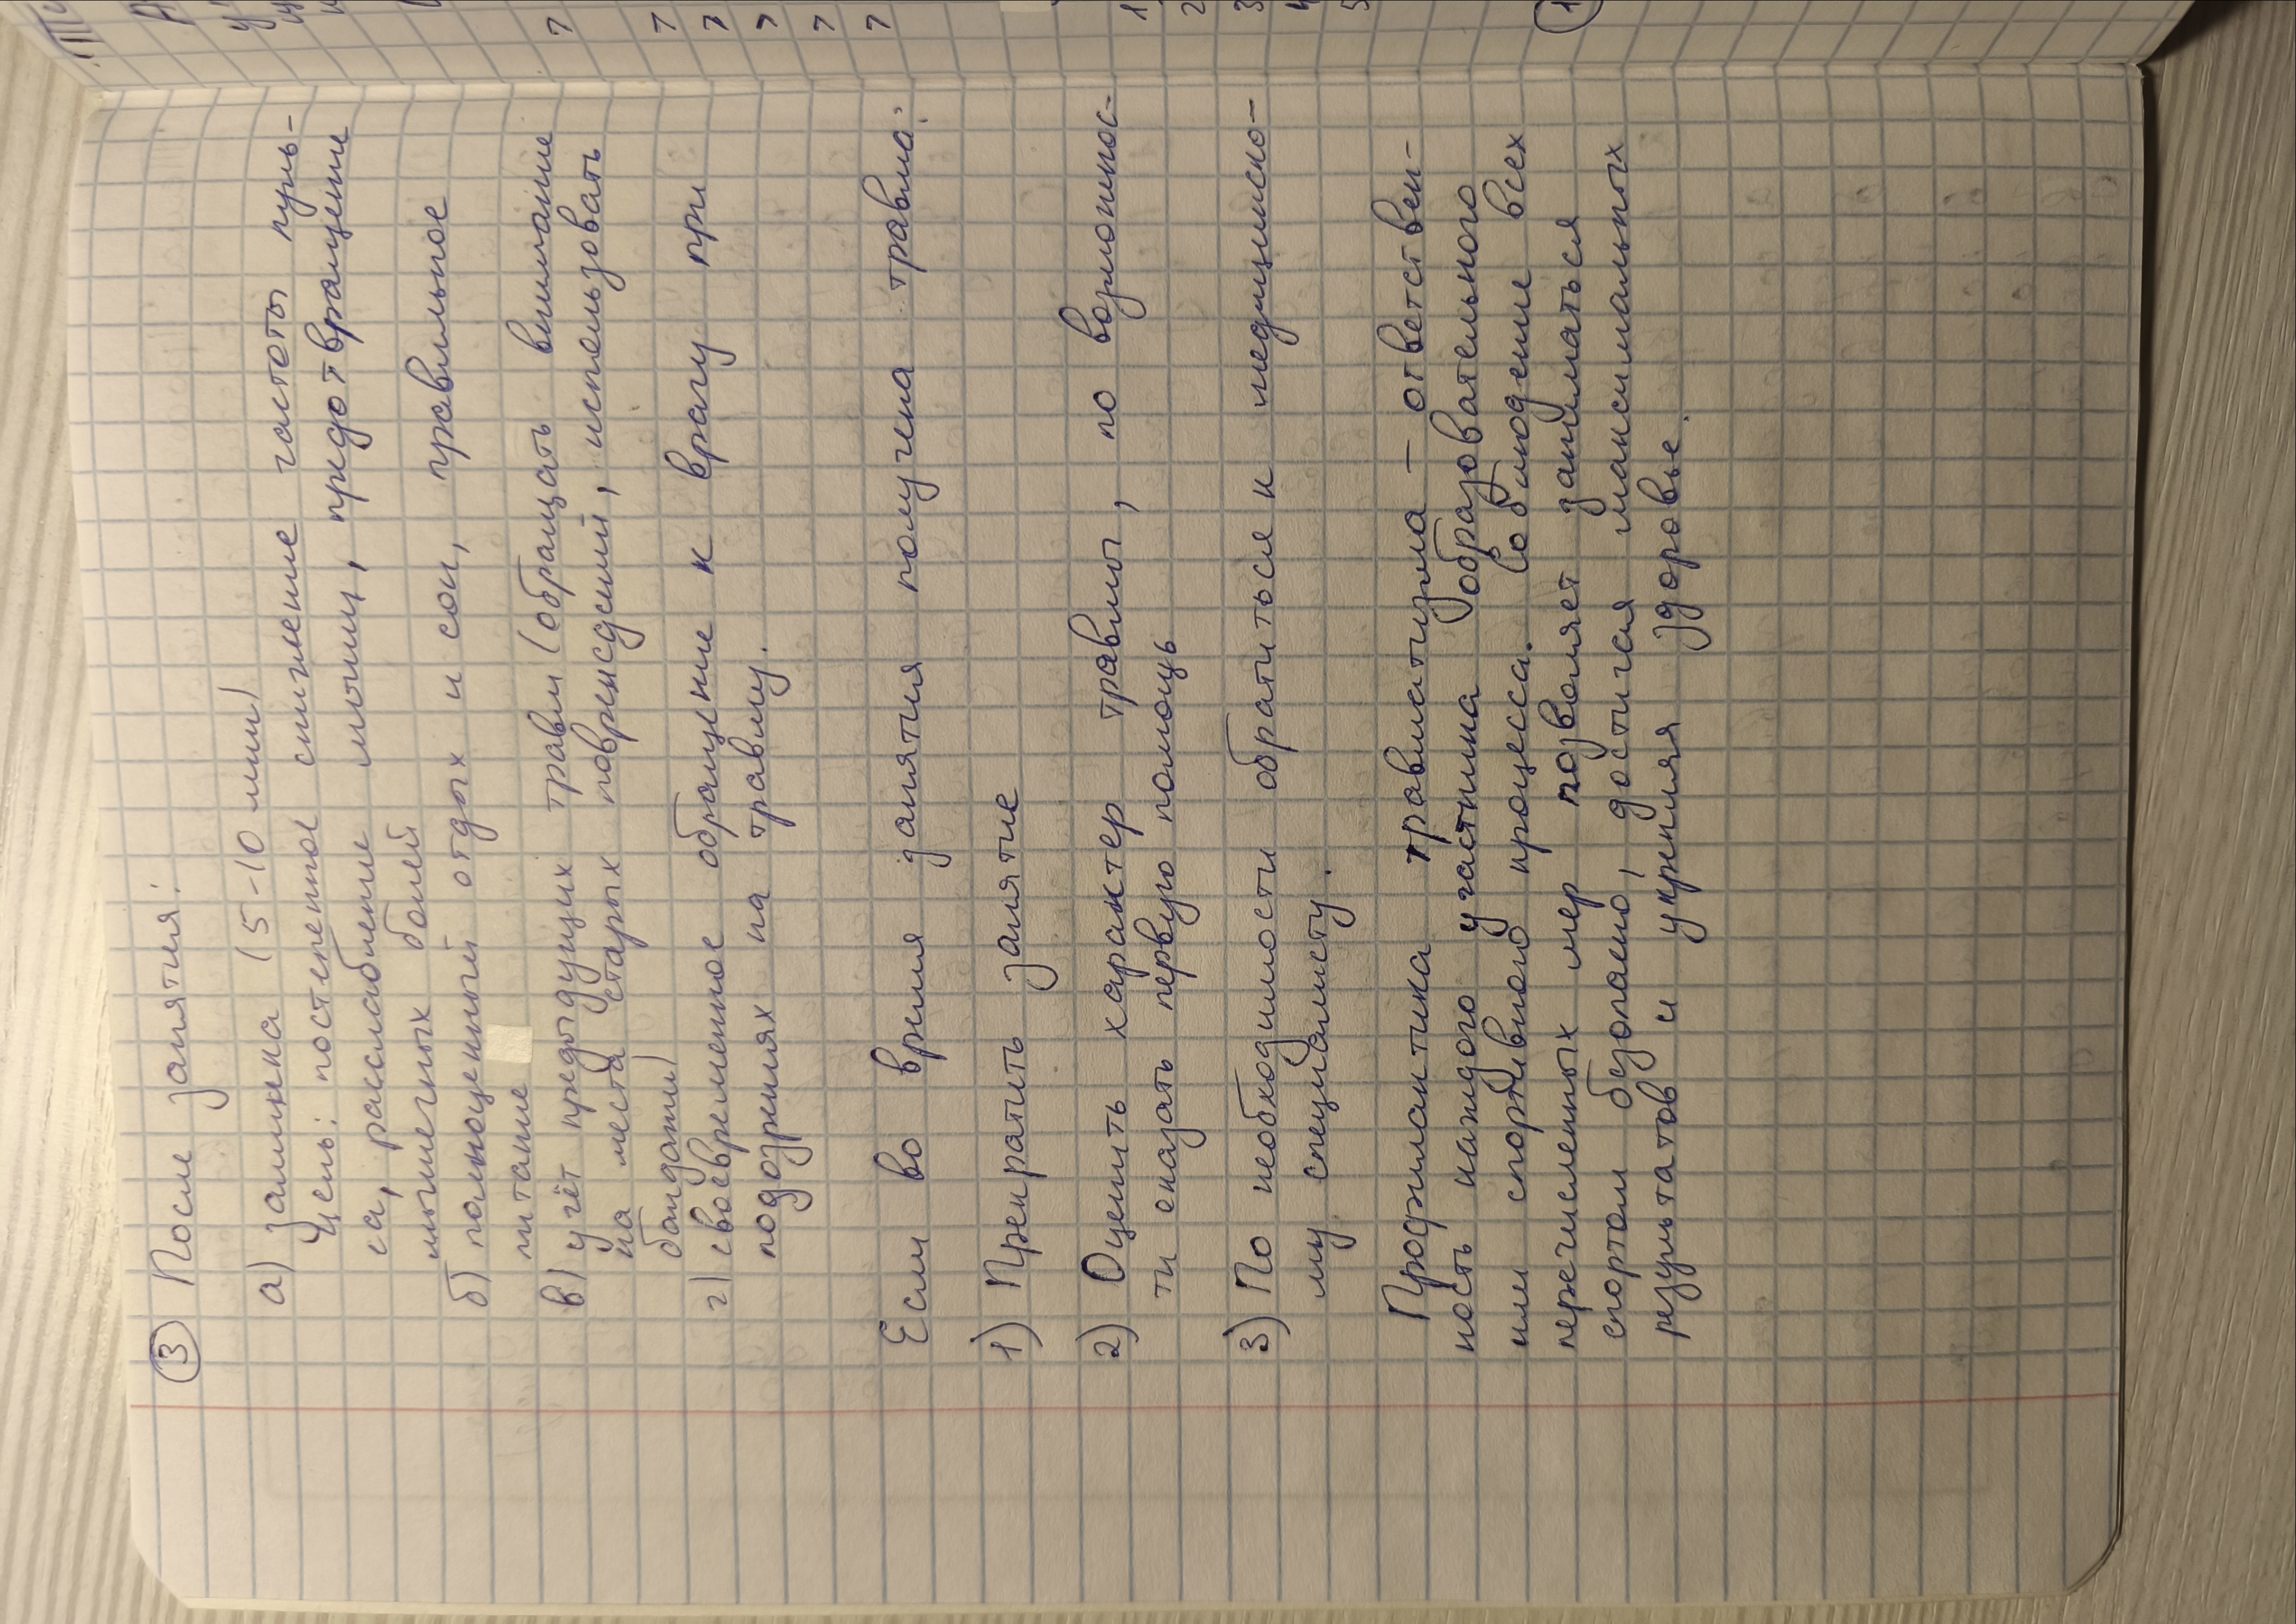 ③ После занятия:
а) заминка (5-10 мин)
Цель: постепенное снижение частоты пуль-
са, расслабление мышц, предотвращение
мышечных болей
б) полноценный отдых и сон, правильное
питание
в) учёт предыдущих травм (обращать внимание
на места старых повреждений, использовать
бандажи)
г) своевременное обращение к врачу при
подозрениях на травму.
Если во время занятия получена травма:
1) Прекратить занятие
2) Оценить характер травмы, по возможнос-
ти оказать первую помощь
3) По необходимости обратиться к медицинско-
му специалисту.
Профилактика травматизма – ответствен-
ность каждого участника образовательного
или спортивного процесса. Соблюдение всех
перечисленных мер позволяет заниматься
спортом безопасно, достигая максимальных
результатов и укрепляя здоровье.